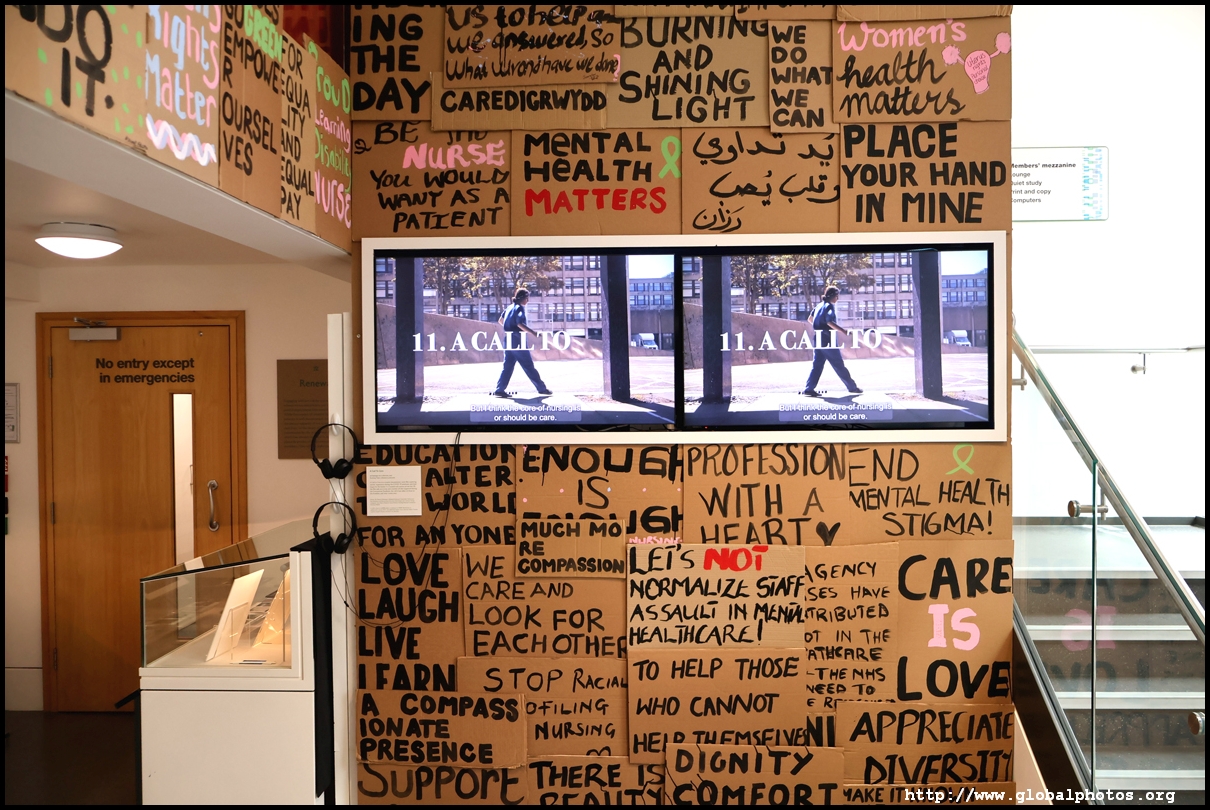 DO
IT.
Rights
Matter
GREEN
EMPOWE
R
OURSEL
VES
FOR
EQUA
LITY
AND
EQUAL
PAY
PROUD
Learning
Disability
NURSE
ING
THE
DAY
us to help
we answered, So
what wrong have we done
CAREDIGRWYDD
BURNING
AND
SHINING
LIGHT
WE
DO
WHAT
WE
CAN
Women's
health
matters
BE THE
NURSE
YOU WOULD
WANT AS A
PATIENT
MENTAL
HEALTH
MATTERS
يد تداوي
وقلب يُحب
PLACE
YOUR HAND
IN MINE
Members' mezzanine
Lounge
Quiet study
Print and copy
Computers
No entry except
in emergencies
11. A CALL TO
But I think the core of nursing is
or should be care.
11. A CALL TO
But I think the core of nursing is
or should be care.
EDUCATION
ALTER
WORLD
FOR ANYONE
ENOUGH
IS
ENOUGH
PROFESSION
WITH A
HEART
END
MENTAL HEALTH
STIGMA!
MUCH MO
RE
COMPASSION
NURSING
LOVE
LAUGH
LIVE
LEARN
WE
CARE AND
LOOK FOR
EACH OTHER
LET'S NOT
NORMALIZE STAFF
ASSAULT IN MENTAL
HEALTHCARE!
AGENCY
HAVE
IN THE
THE NHS
NEED TO
CARE
IS
LOVE
A COMPASS
IONATE
PRESENCE
STOP RACIAL
NURSING
TO HELP THOSE
WHO CANNOT
HELP THEMSELVES
APPRECIATE
DIVERSITY
Support
THERE IS
BEAUTY
DIGNITY
COMFORT
http://www.globalphotos.org